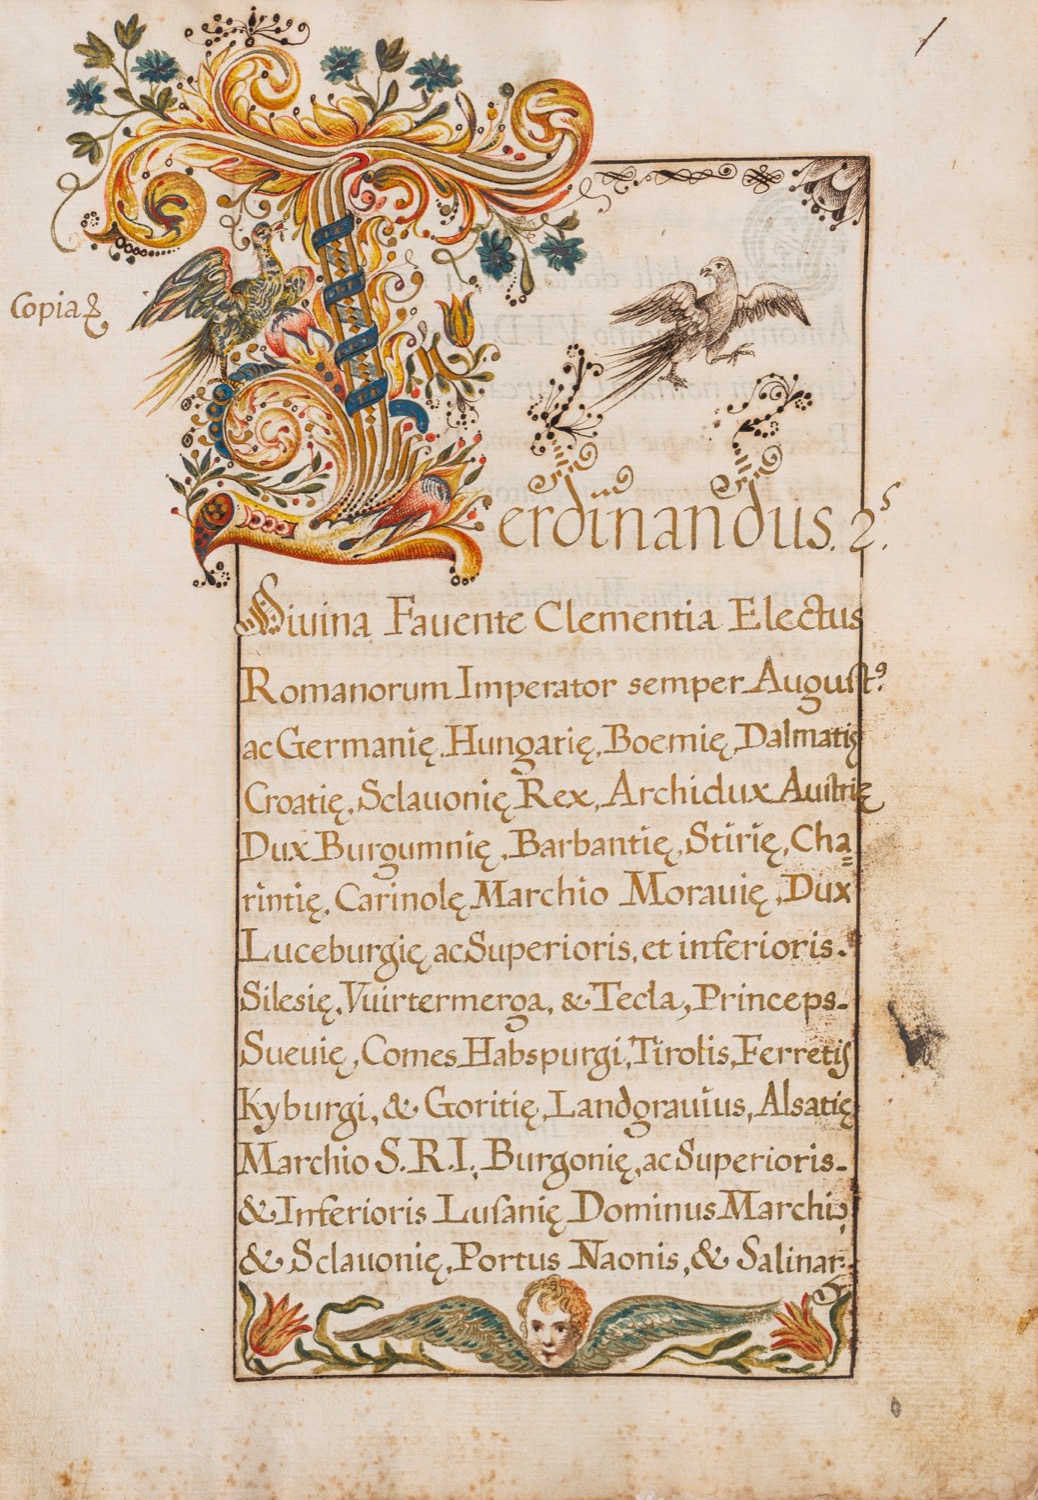 1
Copia
Ferdinandus. 2.s
Diuina Fauente Clementia Electus
Romanorum Imperator semper Auguſt9
ac Germanię, Hungarię, Boemię, Dalmatię
Croatię, Sclauonię Rex, Archidux Auſtrię
Dux Burgumnię, Barbantię, Stirię, Cha=
rintię, Carinolę Marchio Morauię, Dux
Luceburgię ac Superioris, et inferioris.
Silesię, Vuirtermerga, & Tecla, Princeps.
Sueuię, Comes Habspurgi, Tirolis, Ferretis
Kyburgi, & Goritię, Landgrauius, Alsatię
Marchio S. R. I. Burgonię, ac Superioris.
& Inferioris Luſanię Dominus Marchio
& Sclauonię, Portus Naonis, & Salinar.